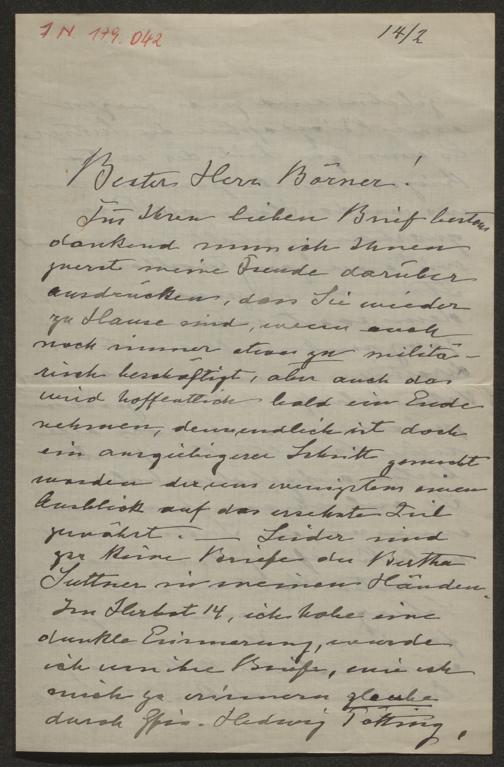 I N. 179.042
14/2
Bester Herr Börner!
Für Ihren lieben Brief bestens
dankend muss ich Ihnen
zuerst meine Freude darüber
ausdrücken, dass Sie wieder
zu Hause sind, wenn auch
noch immer etwas zu militä-
risch beschäftigt, aber auch das
wird hoffentlich bald ein Ende
nehmen, denn endlich ist doch
ein ausgiebigerer Schritt gemacht
worden der uns wenigstens einen
Ausblick auf das ersehnte Ziel
gewährt. — Leider sind
gar keine Briefe der Bertha
Suttner in meinen Händen.
Im Herbst 14, ich habe eine
dunkle Erinnerung, wurde
ich um ihre Briefe, wie ich
mich zu erinnern glaube
durch Hedwig Pötting,